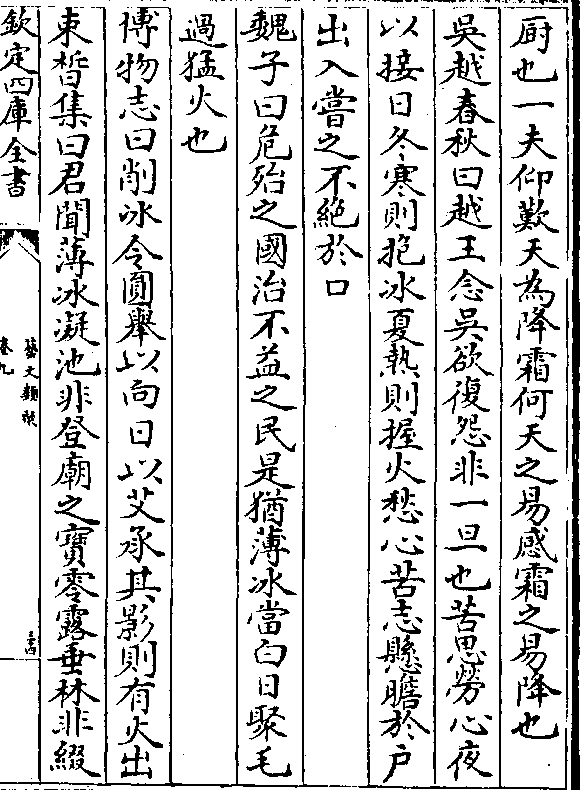 厨也一夫仰歎天為降霜何天之易感霜之易降也
吳越春秋曰越王念吳欲復怨非一旦也苦思勞心夜
以接日冬寒則抱冰夏熱則握火愁心苦志懸膽於戶
出入嘗之不絶於口
魏子曰危殆之國治不益之民是猶薄冰當白日聚毛
過猛火也
博物志曰削冰令圓舉以向日以艾承其影則有火出
束晳集曰君聞薄冰凝池非登廟之寶零露垂林非綴
欽定四庫全書
藝文類聚
卷九